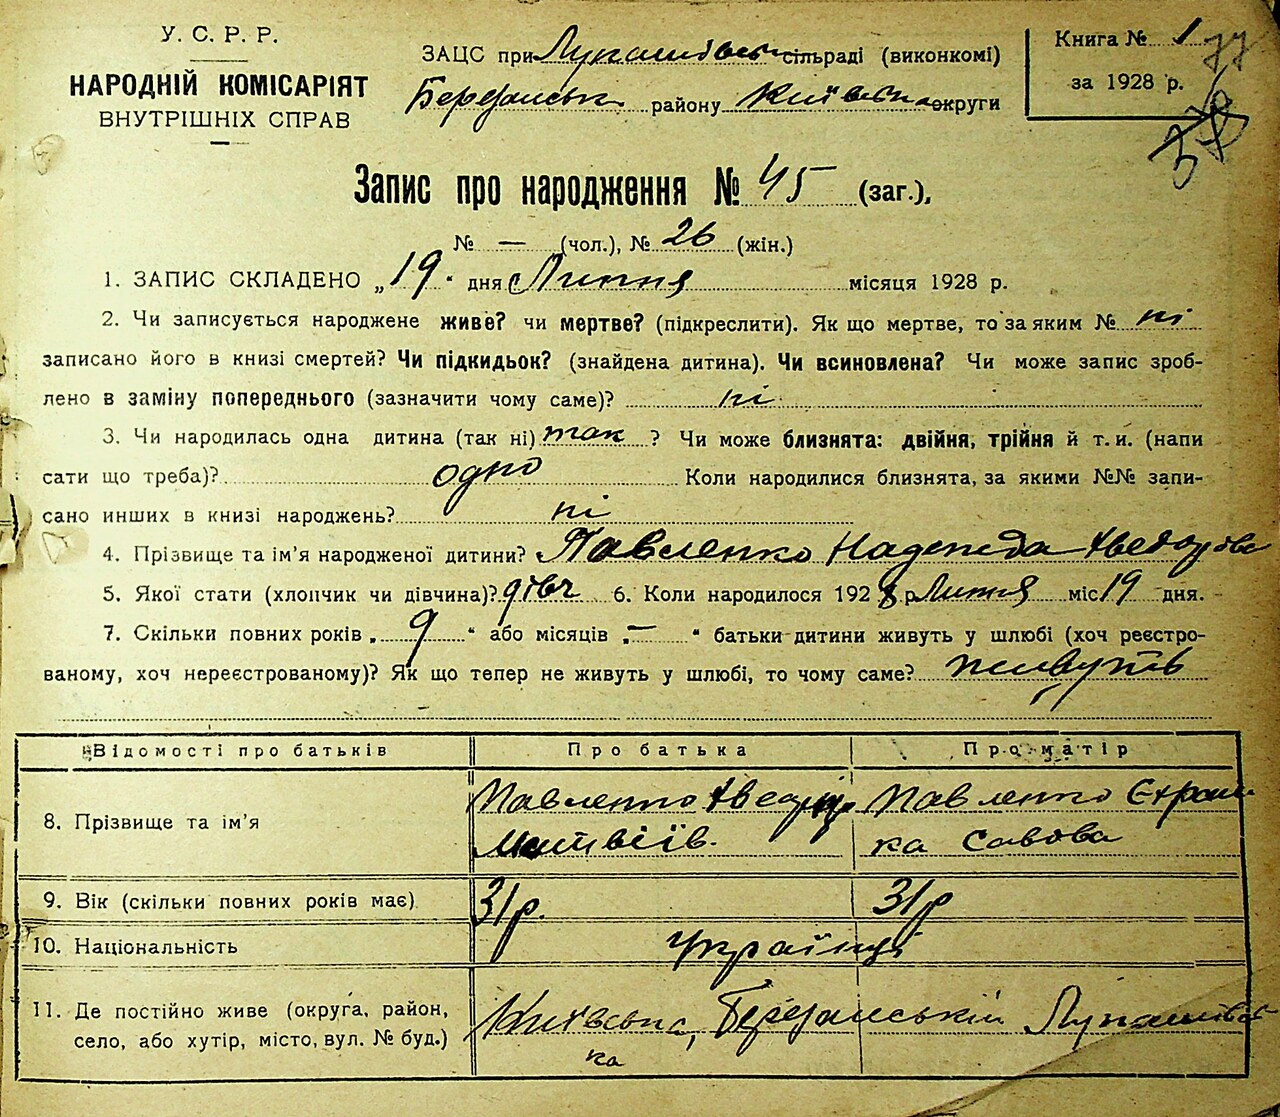 У. С. Р. Р.
НАРОДНІЙ КОМІСАРІЯТ
ВНУТРІШНІХ СПРАВ
ЗАЦС при Лукашівськ сільраді (виконкомі)
Березанськ району Київськ округи
Книга № 1
77
за 1928 р.
Запис про народження № 45 (заг.),
№ — (чол.), № 26 (жін.)
1. ЗАПИС СКЛАДЕНО „19“ дня Липня місяця 1928 р.
2. Чи записується народжене живе? чи мертве? (підкреслити). Як що мертве, то за яким № ні
записано його в книзі смертей? Чи підкидьок? (знайдена дитина). Чи всиновлена? Чи може запис зроб-
лено в заміну попереднього (зазначити чому саме)? ні
3. Чи народилась одна дитина (так ні) так ? Чи може близнята: двійня, трійня й т. и. (напи
сати що треба)? одно Коли народилися близнята, за якими №№ запи-
сано инших в книзі народжень? ні
4. Прізвище та ім'я народженої дитини? Павленко Надежда Хведорова
5. Якої стати (хлопчик чи дівчина)? дівч 6. Коли народилося 1928 р Липня міс 19 дня.
7. Скільки повних років „ 9 “ або місяців „ — “ батьки дитини живуть у шлюбі (хоч реєстро-
ваному, хоч нереєстрованому)? Як що тепер не живуть у шлюбі, то чому саме? живуть
Відомості про батьків Про батька Про матір
8. Прізвище та ім'я Павленко Хведір Матвіїв. Павленко Єхросинка Савова
9. Вік (скільки повних років має) 31 р. 31 р
10. Національність Українці
11. Де постійно живе (округа, район, Київська, Березанський Лукашівка
село, або хутір, місто, вул. № буд.)